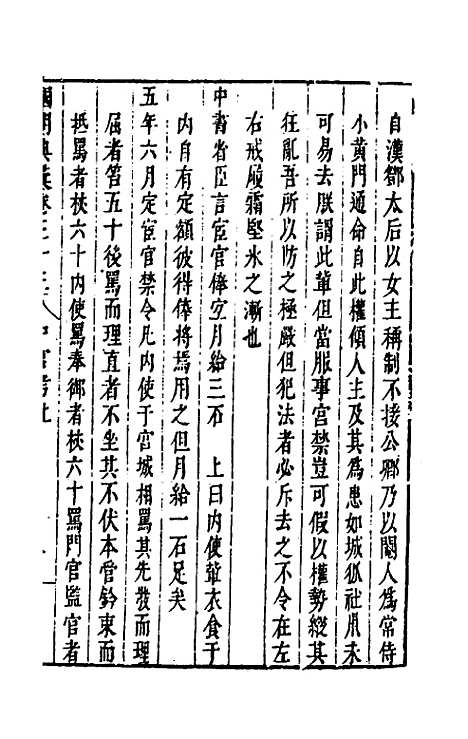 自漢鄧太后以女主稱制不接公卿乃以閹人爲常侍
小黃門通命自此權傾人主及其爲患如城狐社鼠未
可易去朕謂此輩但當服事宫禁豈可假以權勢縱其
狂亂吾所以防之極嚴但犯法者必斥去之不令在左
右戒履霜堅氷之漸也
中書省臣言宦官俸宜月給三石 上曰内使輩衣食于
内自有定額彼得俸將焉用之但月給一石足矣
五年六月定宦官禁令凡内使于宫城相罵其先發而理
屈者笞五十後罵而理直者不坐其不伏本管鈐束而
抵罵者杖六十内使罵奉御者杖六十罵門官監官者
國朝典彙卷三十三 中官考上